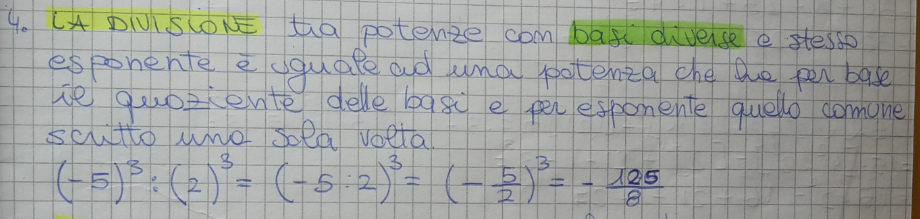 4. LA DIVISIONE tra potenze con basi diverse e stesso
esponente è uguale ad una potenza che ha per base
il quoziente delle basi e per esponente quello comune
scritto una sola volta.
(-5)³:(2)³=(-5:2)³=(-5/2)³=-125/8